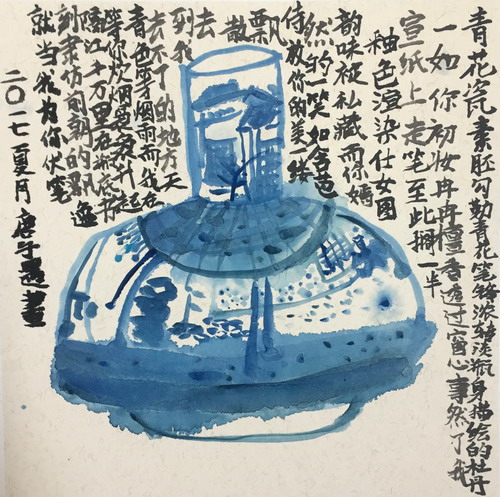 青花瓷 素胚勾勒青花笔锋浓转淡瓶身描绘的杜丹
一如你初妆冉冉檀香透过窗心事然了我
宣纸上走笔至此搁一半
釉色渲染仕女图
韵味被私藏而你嫣
然的一笑如含苞
待放你的美一缕
飘
散
去
到我
去不了的地方天
青色等烟雨而我在
等你炊烟袅袅升起
隔江千万里在瓶底书
刻隶仿前朝的飘逸
就当我为你伏笔
二〇一七夏月